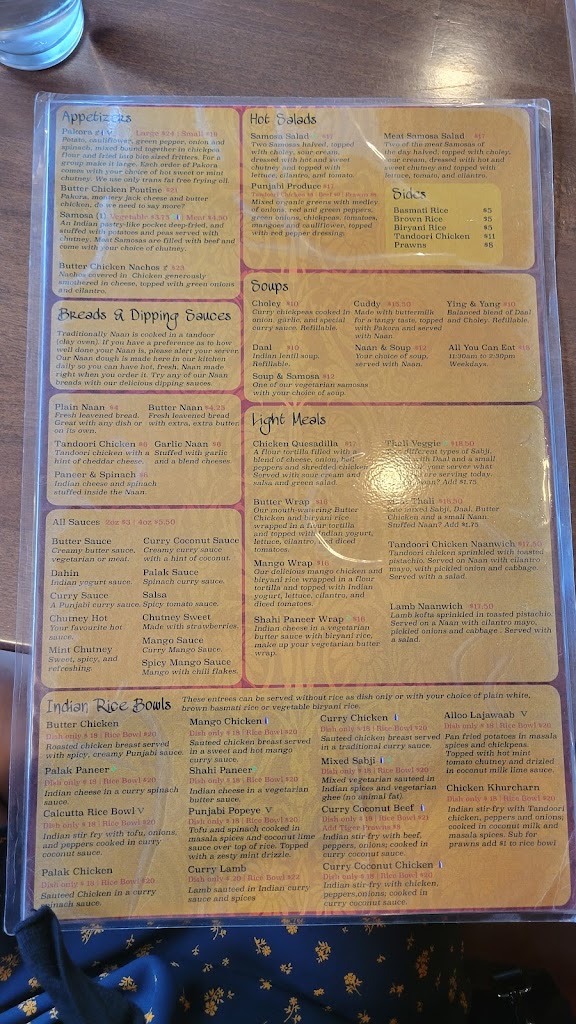 Appetizers
Pakora Large $24 | Small $18
Potato, cauliflower, green pepper, onion and
spinach, mixed bound together in chickpea
flour and fried into bite sized fritters. For a
group make it large. Each order of Pakora
comes with your choice of hot sweet or mint
chutney. We use only trans fat free frying oil.
Butter Chicken Poutine $21
Pakora, montery jack cheese and butter
chicken, do we need to say more?
Samosa (1) Vegetable $3.75 | Meat $4.50
An Indian pastry-like pocket deep-fried, and
stuffed with potatoes and peas served with
chutney. Meat Samosas are filled with beef and
come with your choice of chutney.
Butter Chicken Nachos $23
Nachos covered in Chicken generously
smothered in cheese, topped with green onions
and cilantro.
Breads & Dipping Sauces
Traditionally Naan is cooked in a tandoor
(clay oven). If you have a preference as to how
well done your Naan is, please alert your server.
Our Naan dough is made here in our kitchen
daily so you can have hot, fresh, Naan made
right when you order it. Try any of our Naan
breads with our delicious dipping sauces.
Plain Naan $4
Fresh leavened bread.
Great with any dish or
on its own.
Butter Naan $4.25
Fresh leavened bread
with extra, extra butter
Tandoori Chicken $6
Tandoori chicken with a
hint of cheddar cheese.
Garlic Naan $6
Stuffed with garlic
and a blend cheeses.
Paneer & Spinach $6
Indian cheese and spinach
stuffed inside the Naan.
All Sauces 2oz $3 / 4oz $5.50
Butter Sauce
Creamy butter sauce,
vegetarian or meat.
Dahin
Indian yogurt sauce.
Curry Sauce
A Punjabi curry sauce.
Chutney Hot
Your favourite hot
sauce.
Mint Chutney
Sweet, spicy, and
refreshing.
Curry Coconut Sauce
Creamy curry sauce
with a hint of coconut.
Palak Sauce
Spinach curry sauce.
Salsa
Spicy tomato sauce.
Chutney Sweet
Made with strawberries.
Mango Sauce
Curry Mango Sauce.
Spicy Mango Sauce
Mango with chili flakes.
Hot Salads
Samosa Salad $17
Two Samosas halved, topped
with choley, sour cream,
dressed with hot and sweet
chutney and topped with
lettuce, cilantro, and tomato.
Meat Samosa Salad $17
Two of the meat Samosas of
the day halved, topped with choley,
sour cream, dressed with hot and
sweet chutney and topped with
lettuce, tomato, and cilantro.
Punjabi Produce $17
Mixed organic greens with medley
of onions, red and green peppers,
green onions, chickpeas, tomatoes,
mangoes and cauliflower, topped
with red pepper dressing.
Sides
Basmati Rice $5
Brown Rice $5
Biryani Rice $5
Tandoori Chicken $11
Prawns $8
Soups
Choley $10
Curry chickpeas cooked in
onion, garlic, and special
curry sauce. Refillable.
Cuddy $15.50
Made with buttermilk
for a tangy taste, topped
with Pakora and served
with Naan.
Ying & Yang $10
Balanced blend of Daal
and Choley. Refillable.
Daal $10
Indian lentil soup.
Refillable.
Naan & Soup $12
Your choice of soup,
served with Naan.
All You Can Eat $18
11:30am to 2:30pm
Weekdays.
Soup & Samosa $12
One of our vegetarian samosas
with your choice of soup.
Light Meals
Chicken Quesadilla $17
A flour tortilla filled with a
blend of cheese, onion, bell
peppers and shredded chicken.
Served with sour cream and
salsa and green salad.
Butter Wrap $16
Our mouth-watering Butter
Chicken and biryani rice
wrapped in a flour tortilla
and topped with Indian yogurt,
lettuce, cilantro, and diced
tomatoes.
Mango Wrap $16
Our delicious mango chicken and
biryani rice wrapped in a flour
tortilla and topped with Indian
yogurt, lettuce, cilantro, and
diced tomatoes.
Shahi Paneer Wrap $16
Indian cheese in a vegetarian
butter sauce with biryani rice,
make up your vegetarian butter
wrap.
Thali Veggie $18.50
different types of Sabji,
with Daal and a small
your server what
serving today.
Naan? Add $1.75
Thali $18.50
mixed Sabji, Daal, Butter
Chicken and a small Naan.
Stuffed Naan? Add $1.75
Tandoori Chicken Naanwich $17.50
Tandoori chicken sprinkled with toasted
pistachio. Served on Naan with cilantro
mayo, with pickled onion and cabbage.
Served with a salad.
Lamb Naanwich $17.50
Lamb kofta sprinkled in toasted pistachio.
Served on a Naan with cilantro mayo,
pickled onions and cabbage. Served with
a salad.
Indian Rice Bowls
These entrees can be served without rice as dish only or with your choice of plain white,
brown basmati rice or vegetable biryani rice.
Butter Chicken
Dish only $18 | Rice Bowl $20
Roasted chicken breast served
with spicy, creamy Punjabi sauce.
Palak Paneer
Dish only $18 | Rice Bowl $20
Indian cheese in a curry spinach
sauce.
Calcutta Rice Bowl V
Dish only $18 | Rice Bowl $20
Indian stir-fry with tofu, onions,
and peppers cooked in curry
coconut sauce.
Palak Chicken
Dish only $18 | Rice Bowl $20
Sauteed Chicken in a curry
spinach sauce.
Mango Chicken
Dish only $18 | Rice Bowl $20
Sauteed chicken breast served
in a sweet and hot mango
curry sauce.
Shahi Paneer
Dish only $18 | Rice Bowl $20
Indian cheese in a vegetarian
butter sauce.
Punjabi Popeye V
Dish only $18 | Rice Bowl $20
Tofu and spinach cooked in
masala spices and coconut lime
sauce over top of rice. Topped
with a zesty mint drizzle.
Curry Lamb
Dish only $20 | Rice Bowl $22
Lamb sauteed in Indian curry
sauce and spices
Curry Chicken
Dish only $18 | Rice Bowl $20
Sauteed chicken breast served
in a traditional curry sauce.
Mixed Sabji
Dish only $18 | Rice Bowl $20
Mixed vegetarian sauteed in
Indian spices and vegetarian
ghee (no animal fat).
Curry Coconut Beef
Dish only $18 | Rice Bowl $21
Add Tiger Prawns $8
Indian stir-fry with beef,
peppers, onions; cooked in
curry coconut sauce.
Curry Coconut Chicken
Dish only $18 | Rice Bowl $20
Indian stir-fry with chicken,
peppers,onions; cooked in
curry coconut sauce.
Alloo Lajawaab V
Dish only $18 | Rice Bowl $20
Pan fried potatoes in masala
spices and chickpeas.
Topped with hot mint
tomato chutney and drizled
in coconut milk lime sauce.
Chicken Khurcharn
Dish only $18 | Rice Bowl $20
Indian stir-fry with Tandoori
chicken, peppers and onions;
cooked in coconut milk and
masala spices. Sub for
prawns add $1 to rice bowl